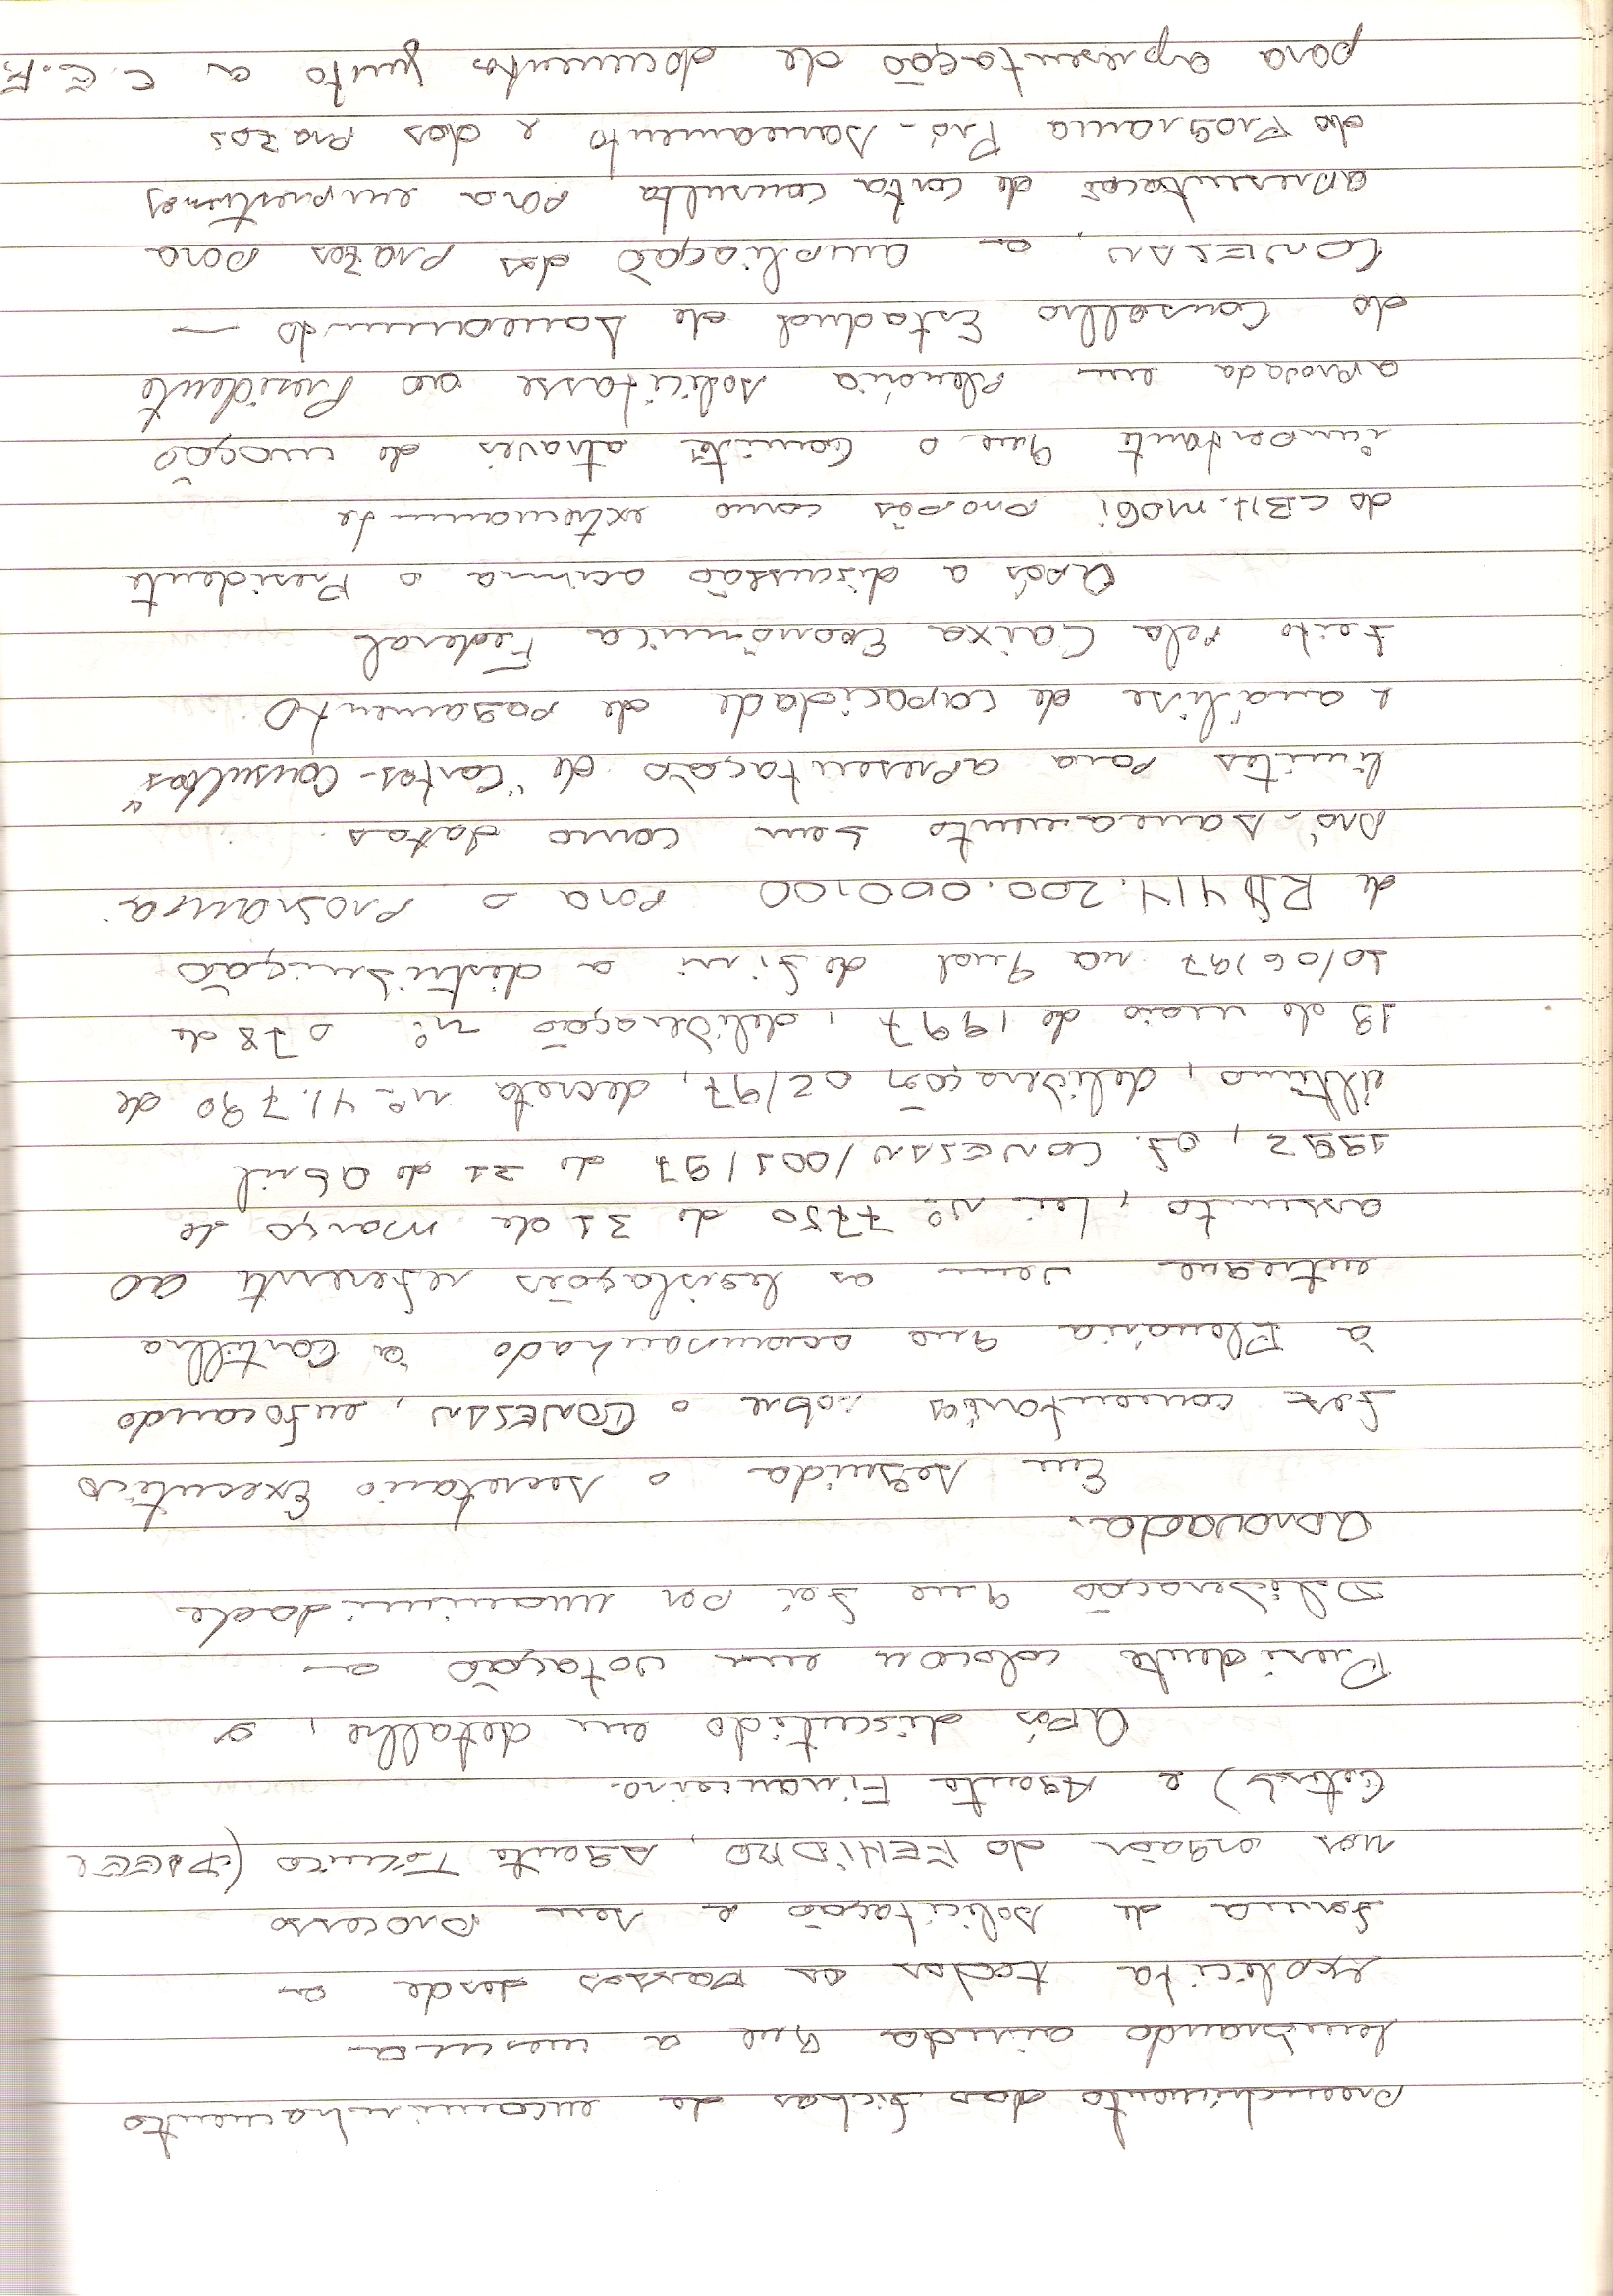 preenchimento das fichas de encaminhamento
lembrando ainda que a mesma
explicita todos os passos desde a
forma de solicitação e seu processo
nos orgãos do FEHIDRO, Agente Técnico (
Cetesb) e Agente Financeiro.
Após discutido em detalhe, o
Presidente colocou em votação a
Deliberação que foi por unanimidade
aprovada.
Em seguida o secretario Executivo
fez comentários sobre o CONESAN, enfocando
à Plenária que acompanhado à Cartilha
entregue vem as legislações referente ao
assunto, Lei nº 7750 de 31 de março de
1992, of. CONESAN/001/97 de 31 de Abril
último, deliberação 02/97, decreto nº 41.790 de
19 de maio de 1997, deliberação nº 078 de
10/06/97 na qual defini a distribuição
de R$ 414.200.000,00 para o Programa
Pró-saneamento bem como datas
limites para apresentação de "Cartas-Consultas"
e análise de capacidade de pagamento
feito pela Caixa Econômica Federal
Após a discussão acima o Presidente
do CBH.MOGi propôs como extremamente
importante que o Comitê através de moção
aprovada em plenária solicitasse ao Presidente
do Conselho Estadual de Saneamento —
CONESAN, a ampliação dos prazos para
apresentação de carta consulta para emprestimos
do Programa Pró-saneamento e dos prazos
para apresentação de documentos junto a C.E.F.